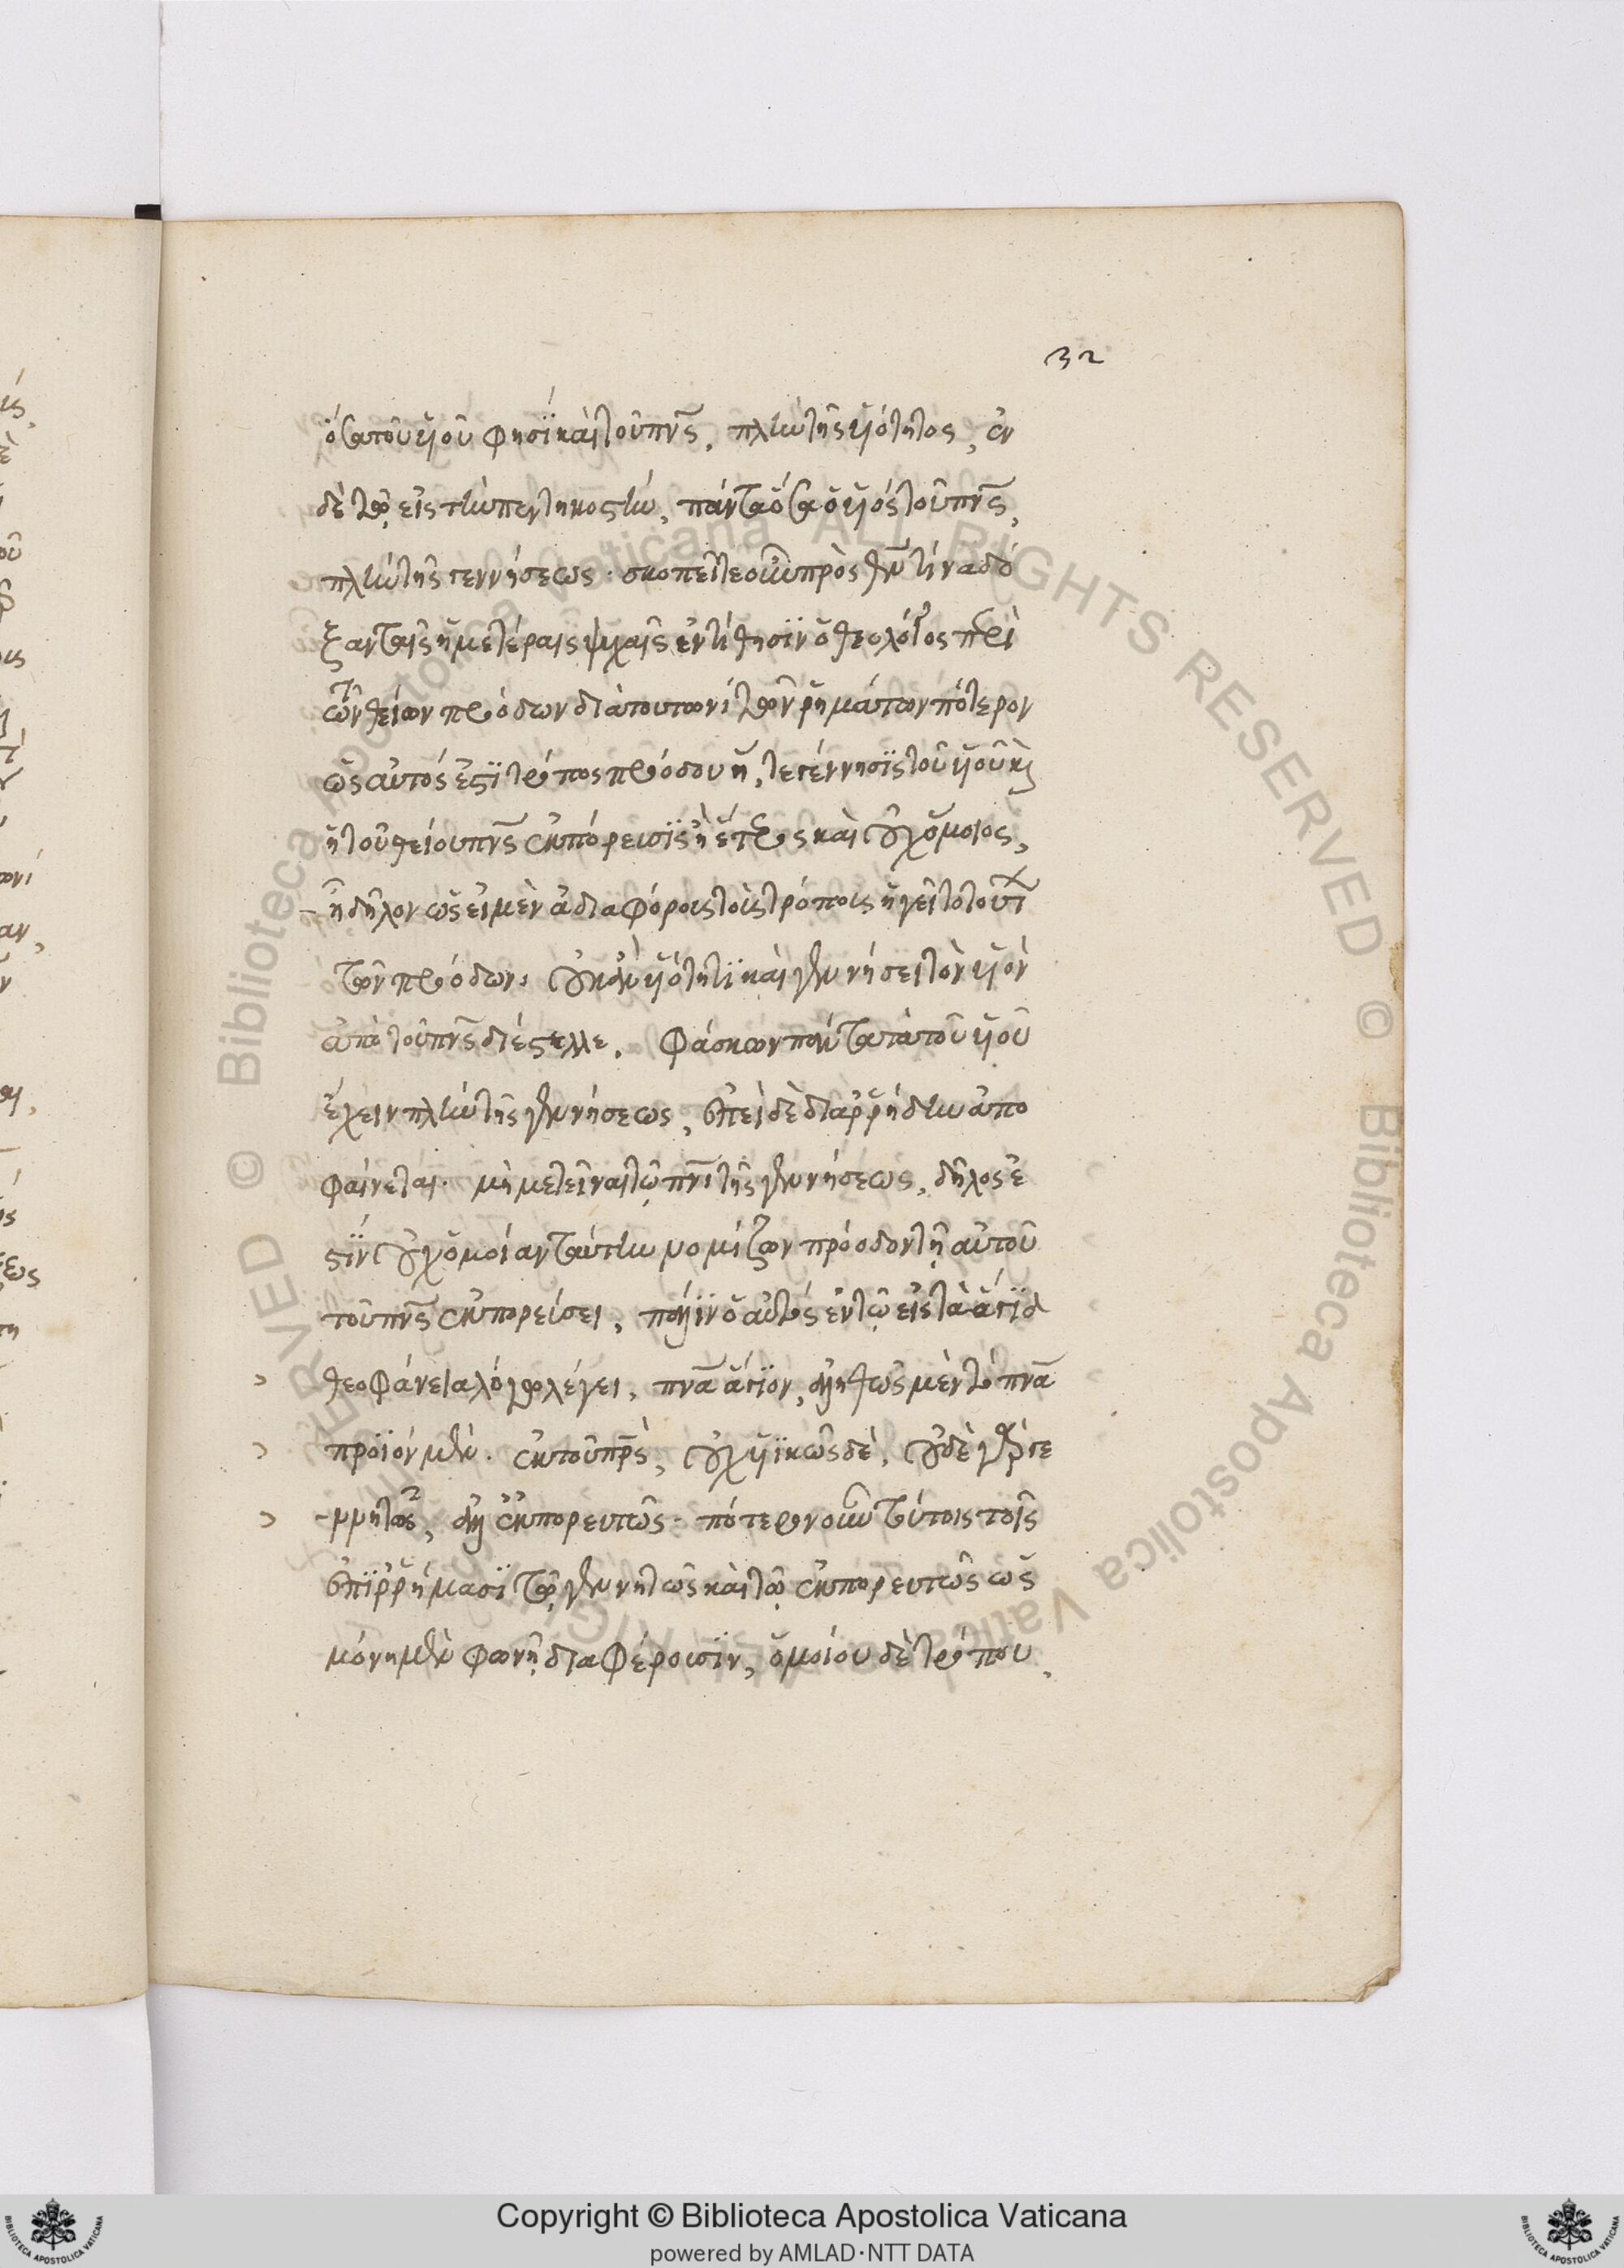 32
ὅσα τοῦ υἱοῦ φησὶ καὶ τοῦ πνς, πλὴν τῆς υἱότητος, ἐν
δὲ τῷ εἰς τὴν πεντηκοστὴν, πάντα ὅσα ὁ υἱός τοῦ πνς,
πλὴν τῆς γεννήσεως. σκοπεῖτε οὖν πρὸς θυ τίνα δό
ξαν ταῖς ἡμετέραις ψυχαῖς ἐντίθησιν ὁ θεολόγος περὶ
τῶν θείων προόδων διὰ τουτωνὶ τῶν ῥημάτων πότερον
ὡς αὐτός ἐστι τρόπος προόδου ἥ, τε γέννησις τοῦ υἱοῦ καὶ
ἡ τοῦ θείου πνς ἐκπόρευσις ἢ ἕτερος καὶ οὐχ ὅμοιος,
ἢ δῆλον ὡς εἰ μὲν ἀδιαφόρους τοὺς τρόπους ἡγεῖτο τούτ
των προόδων, οὐκ ἂν υἱότητι καὶ γεννήσει τὸν υἱὸν
ἀπὸ τοῦ πνς διέστελλε, φάσκων πάντα τὰ τοῦ υἱοῦ
ἔχειν πλὴν τῆς γεννήσεως, ἐπεὶ δὲ διαρρήδην ἀπο
φαίνεται. μὴ μετεῖναι τῷ πνι τῆς γεννήσεως, δῆλος ἐ
στὶν οὐχ ὁμοίαν ταύτην νομίζων πρόοδον τῇ αὐτοῦ
τοῦ πνς ἐκπορεύσει, πάλιν ὁ αὐτός ἐν τῷ εἰς τὰ ἅγια
θεοφάνεια λόγῳ λέγει, πνα ἅγιον, ἀληθῶς μὲν τὸ πνα
προϊὸν μὲν. ἐκ τοῦ πρς, οὐχ υἱικῶς δὲ, οὐδὲ γὰρ γε
ννητῶς, ἀλλ' ἐκπορευτῶς. πότερον οὖν τούτοις τοῖς
ἐπιρρήμασι τῷ γεννητῶς καὶ τῷ ἐκπορευτῶς ὡς
μόνη μὲν φωνῇ διαφέρουσιν, ὁμοίου δὲ τρόπου,
Copyright © Biblioteca Apostolica Vaticana
powered by AMLAD·NTT DATA